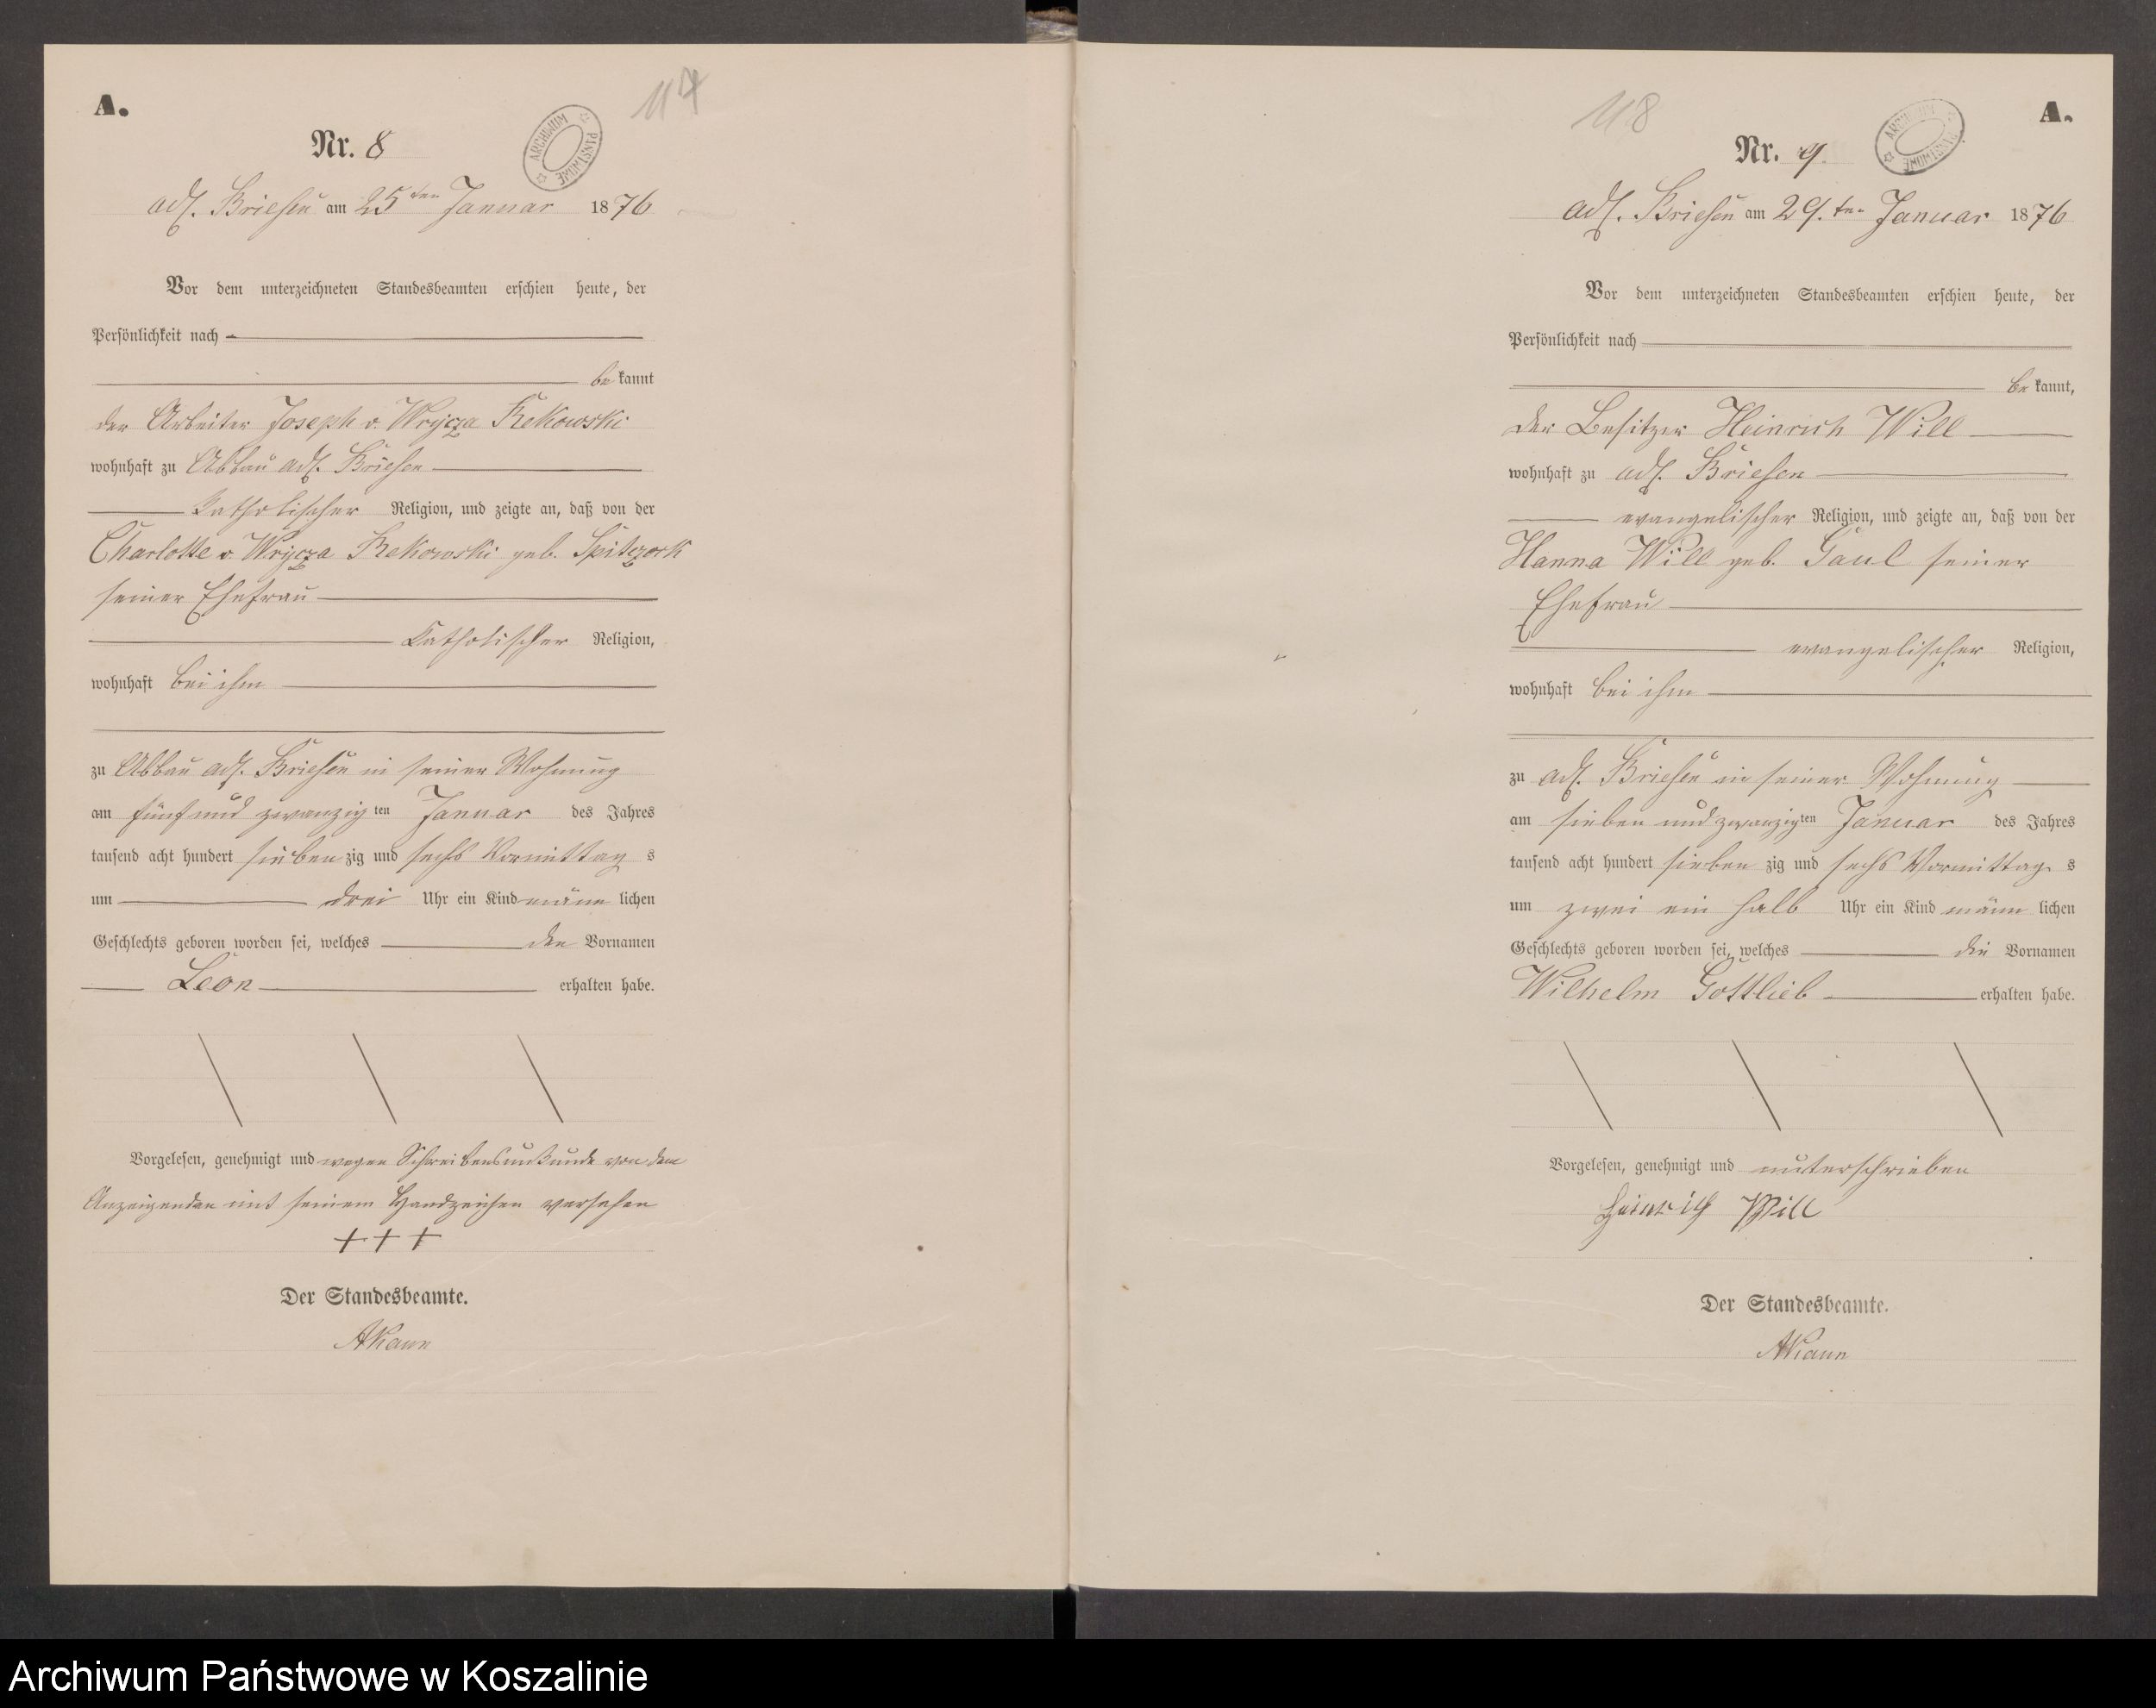 A.
117
Nr. 8
ARCHIWUM PAŃSTWOWE
adl. Briesen am 25ten Januar 1876
Vor dem unterzeichneten Standesbeamten erschien heute, der
Persönlichkeit nach
be kannt
der Arbeiter Joseph v. Wrycza Rekowski
wohnhaft zu Abbau adl. Briesen
katholischer Religion, und zeigte an, daß von der
Charlotte v. Wrycza Rekowski geb. Spitzork
seiner Ehefrau
katholischer Religion,
wohnhaft bei ihm
zu Abbau adl. Briesen in seiner Wohnung
am fünf und zwanzig ten Januar des Jahres
tausend acht hundert sieben zig und sechs Vormittag s
um drei Uhr ein Kind männ lichen
Geschlechts geboren worden sei, welches den Vornamen
Leon erhalten habe.
Vorgelesen, genehmigt und wegen Schreibensunkunde von dem
Anzeigenden mit seinem Handzeichen versehen
+++
Der Standesbeamte.
AKaun
A.
118
Nr. 9.
ARCHIWUM PAŃSTWOWE
adl. Briesen am 29.ten Januar 1876
Vor dem unterzeichneten Standesbeamten erschien heute, der
Persönlichkeit nach
be kannt,
der Besitzer Heinrich Will
wohnhaft zu adl. Briesen
evangelischer Religion, und zeigte an, daß von der
Hanna Will geb. Gaul seiner
Ehefrau
evangelischer Religion,
wohnhaft bei ihm
zu adl. Briesen in seiner Wohnung
am sieben und zwanzigten Januar des Jahres
tausend acht hundert sieben zig und sechs Vormittag s
um zwei ein halb Uhr ein Kind männ lichen
Geschlechts geboren worden sei, welches die Vornamen
Wilhelm Gottlieb erhalten habe.
Vorgelesen, genehmigt und unterschrieben
Heinrich Will
Der Standesbeamte.
AKaun
Archiwum Państwowe w Koszalinie